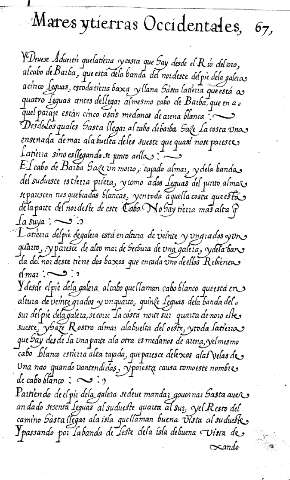 Mares y tierras Occidentales, 67,
y Deuese Aduertir que la tierra y costa que hay desde el Rio del oro,
al cabo de Barba, que esta de la banda del nordeste del pie de la galera
a cinco leguas, es toda tierra baxa y llana hasta la tierra que esta a
quatro leguas antes de llegar al mesmo cabo de Barba, que en a
quel paraje estan cinco o seis medanos de arena blanca :
Desde los quales hasta llegar al cabo de barba haze la costa una
ensenada de mar a la buelta del es sueste que quasi no se paresce
la tierra sino es llegandose junto a ella :
El cabo de Barba haze un morro, tajado al mar, y de la banda
del sudueste es tierra prieta, y como a dos leguas del junto al mar
se parescen tres quebradas blancas, y en toda aquella costa que esta
de la parte del nordeste de este Cabo No hay tierra mas alta q
la suya :
La tierra del pie de galera esta en altura de veinte y un grados y un
quarto, y paresce de alto mar de hechura de una galera, y de la ban
da del nordeste tiene dos baxos que en cada uno de ellos Rebienta
el mar :
Y desde el pie de la galera al cabo que llaman cabo blanco que esta en
altura de veinte grados y un quarto, quinze leguas de la banda del
sur del pie de la galera, se corre la costa norte sur quarta de noroeste
sueste, y haze Rostro al mar a la buelta del oeste, y toda la tierra
que hay desde la una parte a la otra es medanos de arena, y el mesmo
cabo blanco es tierra alta tajada, que paresce de lexos a las Velas de
una nao quando van tendidas, y por esta causa tomo este nombre
de cabo blanco :
Partiendo del pie de la galera se deue mandar gouernar hasta auer
andado sesenta leguas al sudueste quarta al sur, y el Resto del
camino hasta llegar a la isla que llaman buena vista al sudueste
Y passando por la banda de leste de la isla de buena Vista de
xando